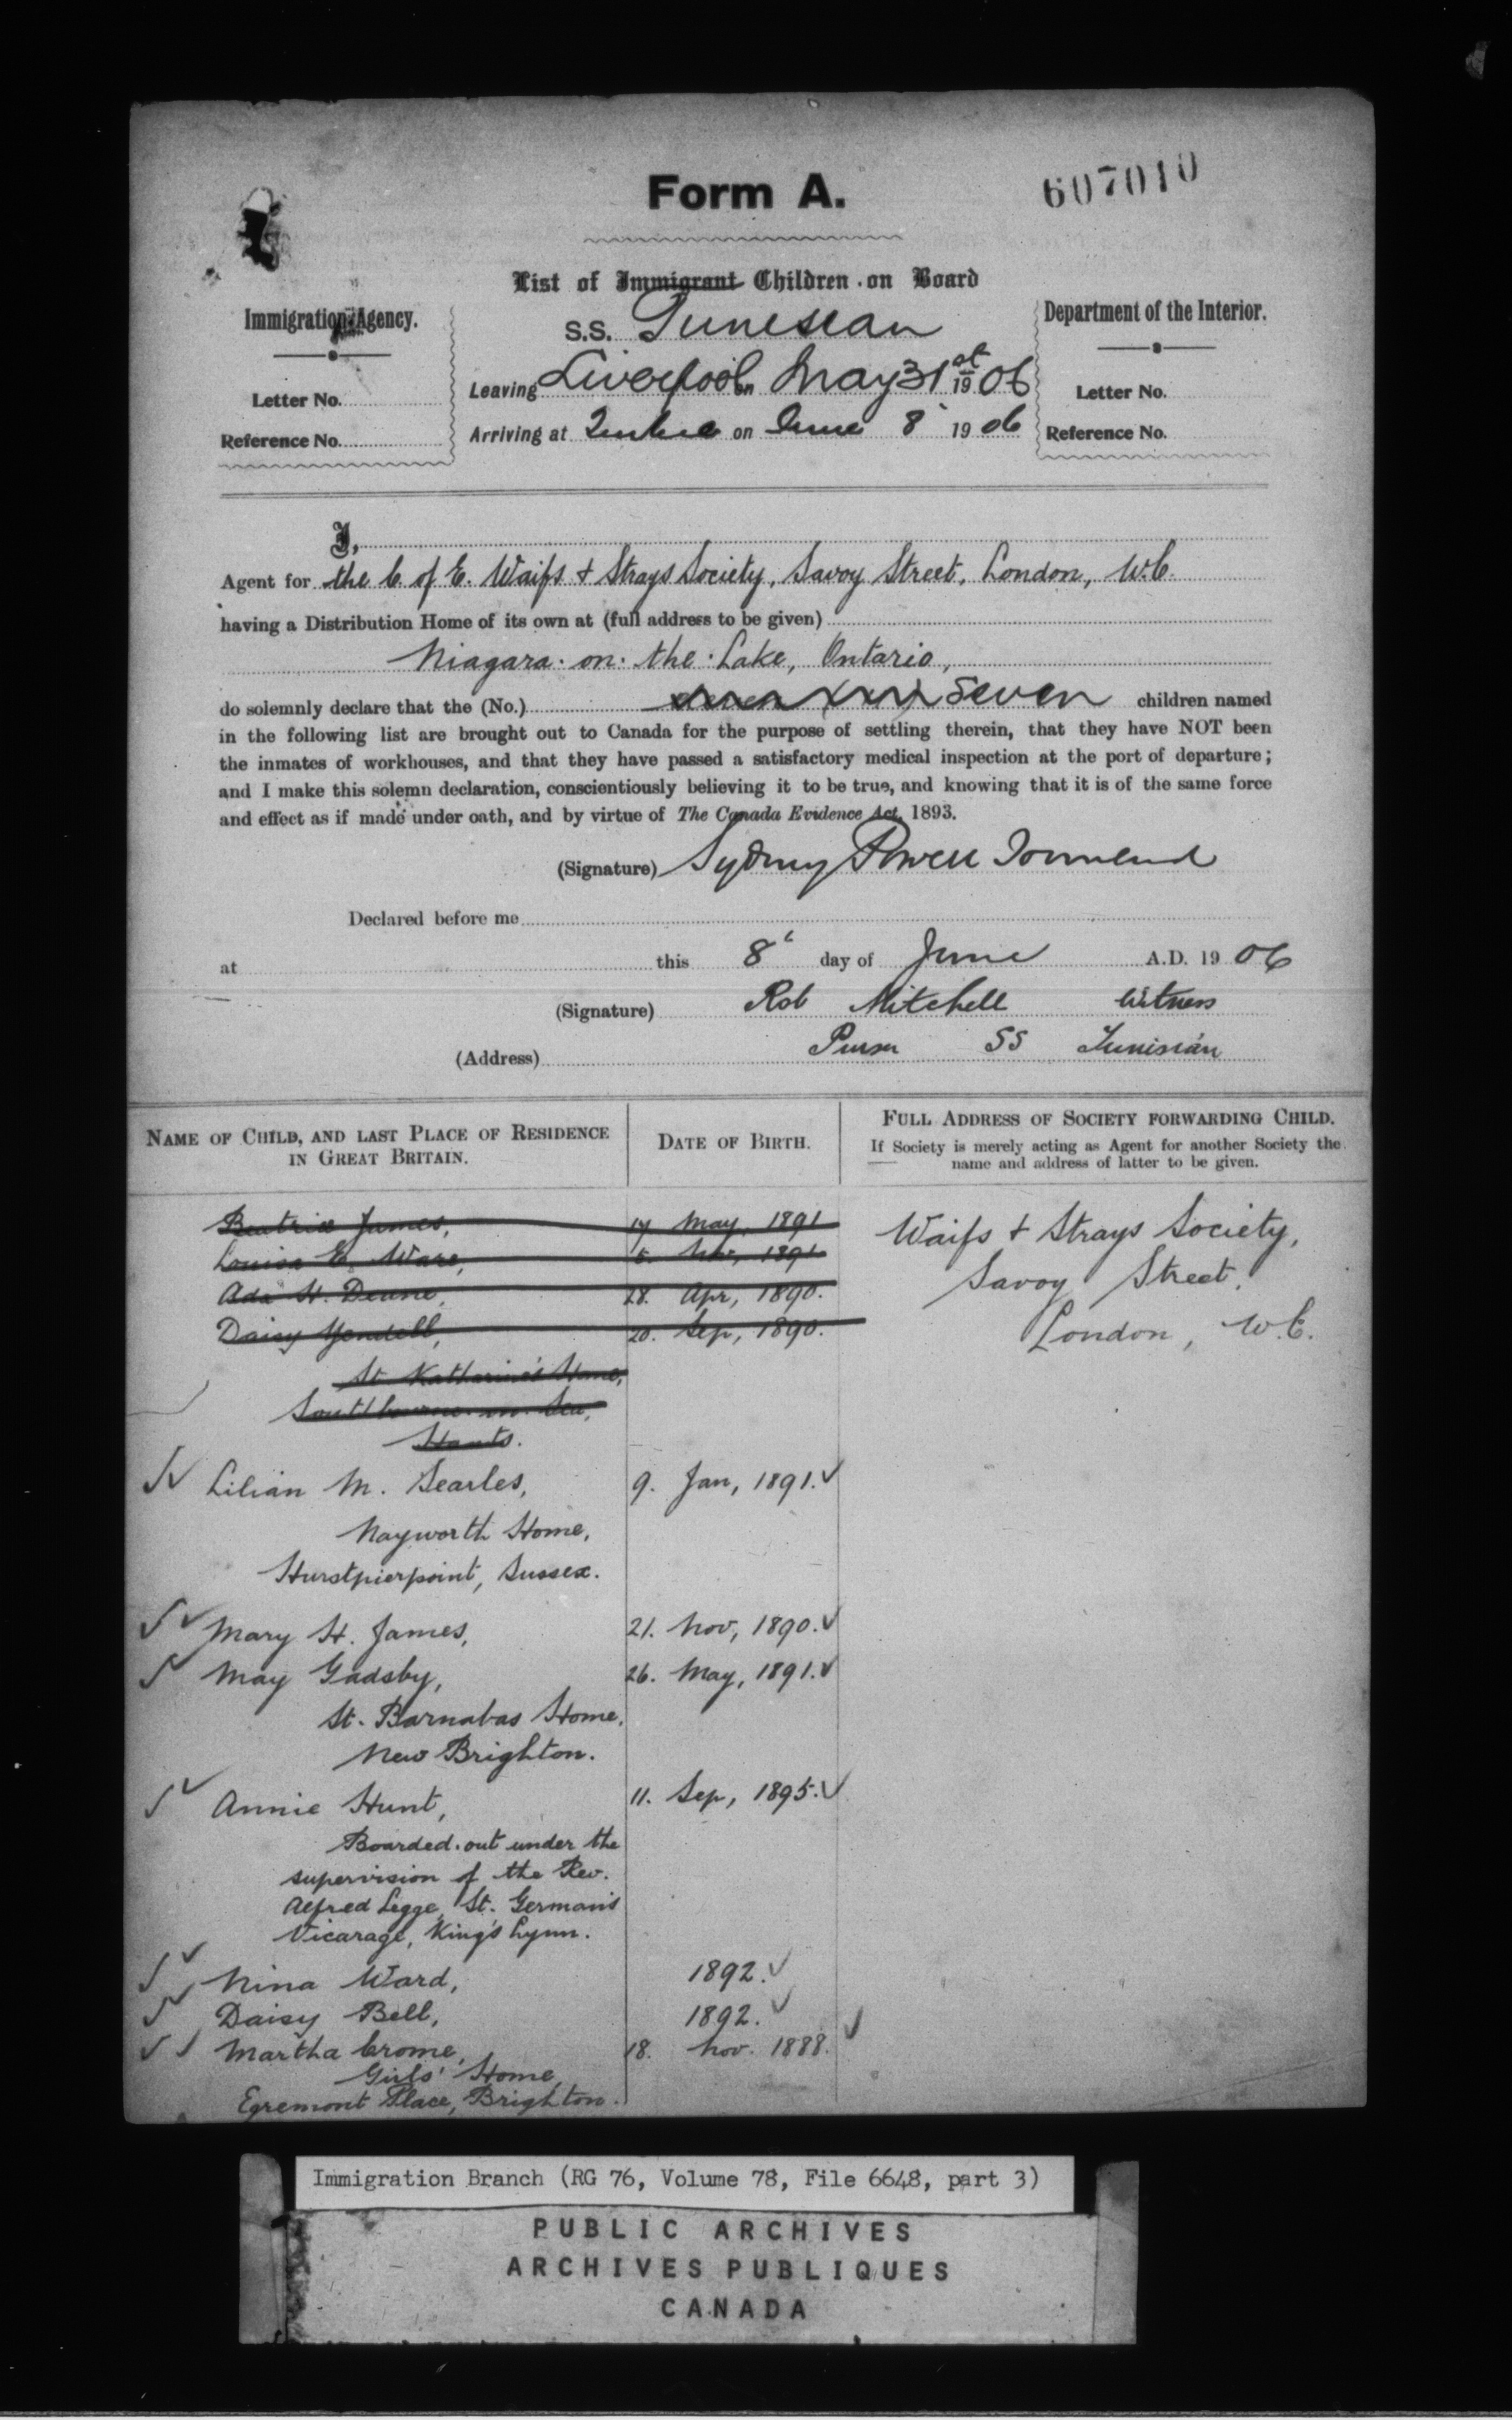 Form A.
607010
List of Immigrant Children on Board
Immigration Agency.
S.S. Tunisian
Department of the Interior.
Letter No.
Leaving Liverpool on May 31st 1906
Letter No.
Reference No.
Arriving at Quebec on June 8 1906
Reference No.
I,
Agent for the C. of E. Waifs + Strays Society, Savoy Street, London, W.C.
having a Distribution Home of its own at (full address to be given)
Niagara-on-the-Lake, Ontario,
do solemnly declare that the (No.) Seven children named
in the following list are brought out to Canada for the purpose of settling therein, that they have NOT been
the inmates of workhouses, and that they have passed a satisfactory medical inspection at the port of departure;
and I make this solemn declaration, conscientiously believing it to be true, and knowing that it is of the same force
and effect as if made under oath, and by virtue of The Canada Evidence Act, 1893.
(Signature) Sydney Powell Townsend
Declared before me
at this 8 day of June A.D. 1906
(Signature) Rob Mitchell Witness
(Address) Purser SS Tunisian
NAME OF CHILD, AND LAST PLACE OF RESIDENCE
IN GREAT BRITAIN.
DATE OF BIRTH.
FULL ADDRESS OF SOCIETY FORWARDING CHILD.
If Society is merely acting as Agent for another Society the
name and address of latter to be given.
Beatrice James, 17 May, 1891
Louisa E. Ware, Nov, 1891
Ada H. Deane, 28. Apr, 1890.
Daisy Yendell, 20. Sep, 1890.
Waifs + Strays Society,
Savoy Street,
London, W.C.
St. Katharine's Home,
Southbourne-on-Sea,
Hants.
Lilian M. Searles, 9. Jan, 1891.
Nayworth Home,
Hurstpierpoint, Sussex.
Mary H. James, 21. Nov, 1890.
May Gadsby, 26. May, 1891.
St. Barnabas Home,
New Brighton.
Annie Hunt, 11. Sep, 1895.
Boarded-out under the
supervision of the Rev.
Alfred Legge, St. German's
Vicarage, King's Lynn.
Nina Ward, 1892.
Daisy Bell, 1892.
Martha Crome, 18. Nov. 1888.
Girls' Home,
Egremont Place, Brighton.
Immigration Branch (RG 76, Volume 78, File 6648, part 3)
PUBLIC ARCHIVES
ARCHIVES PUBLIQUES
CANADA